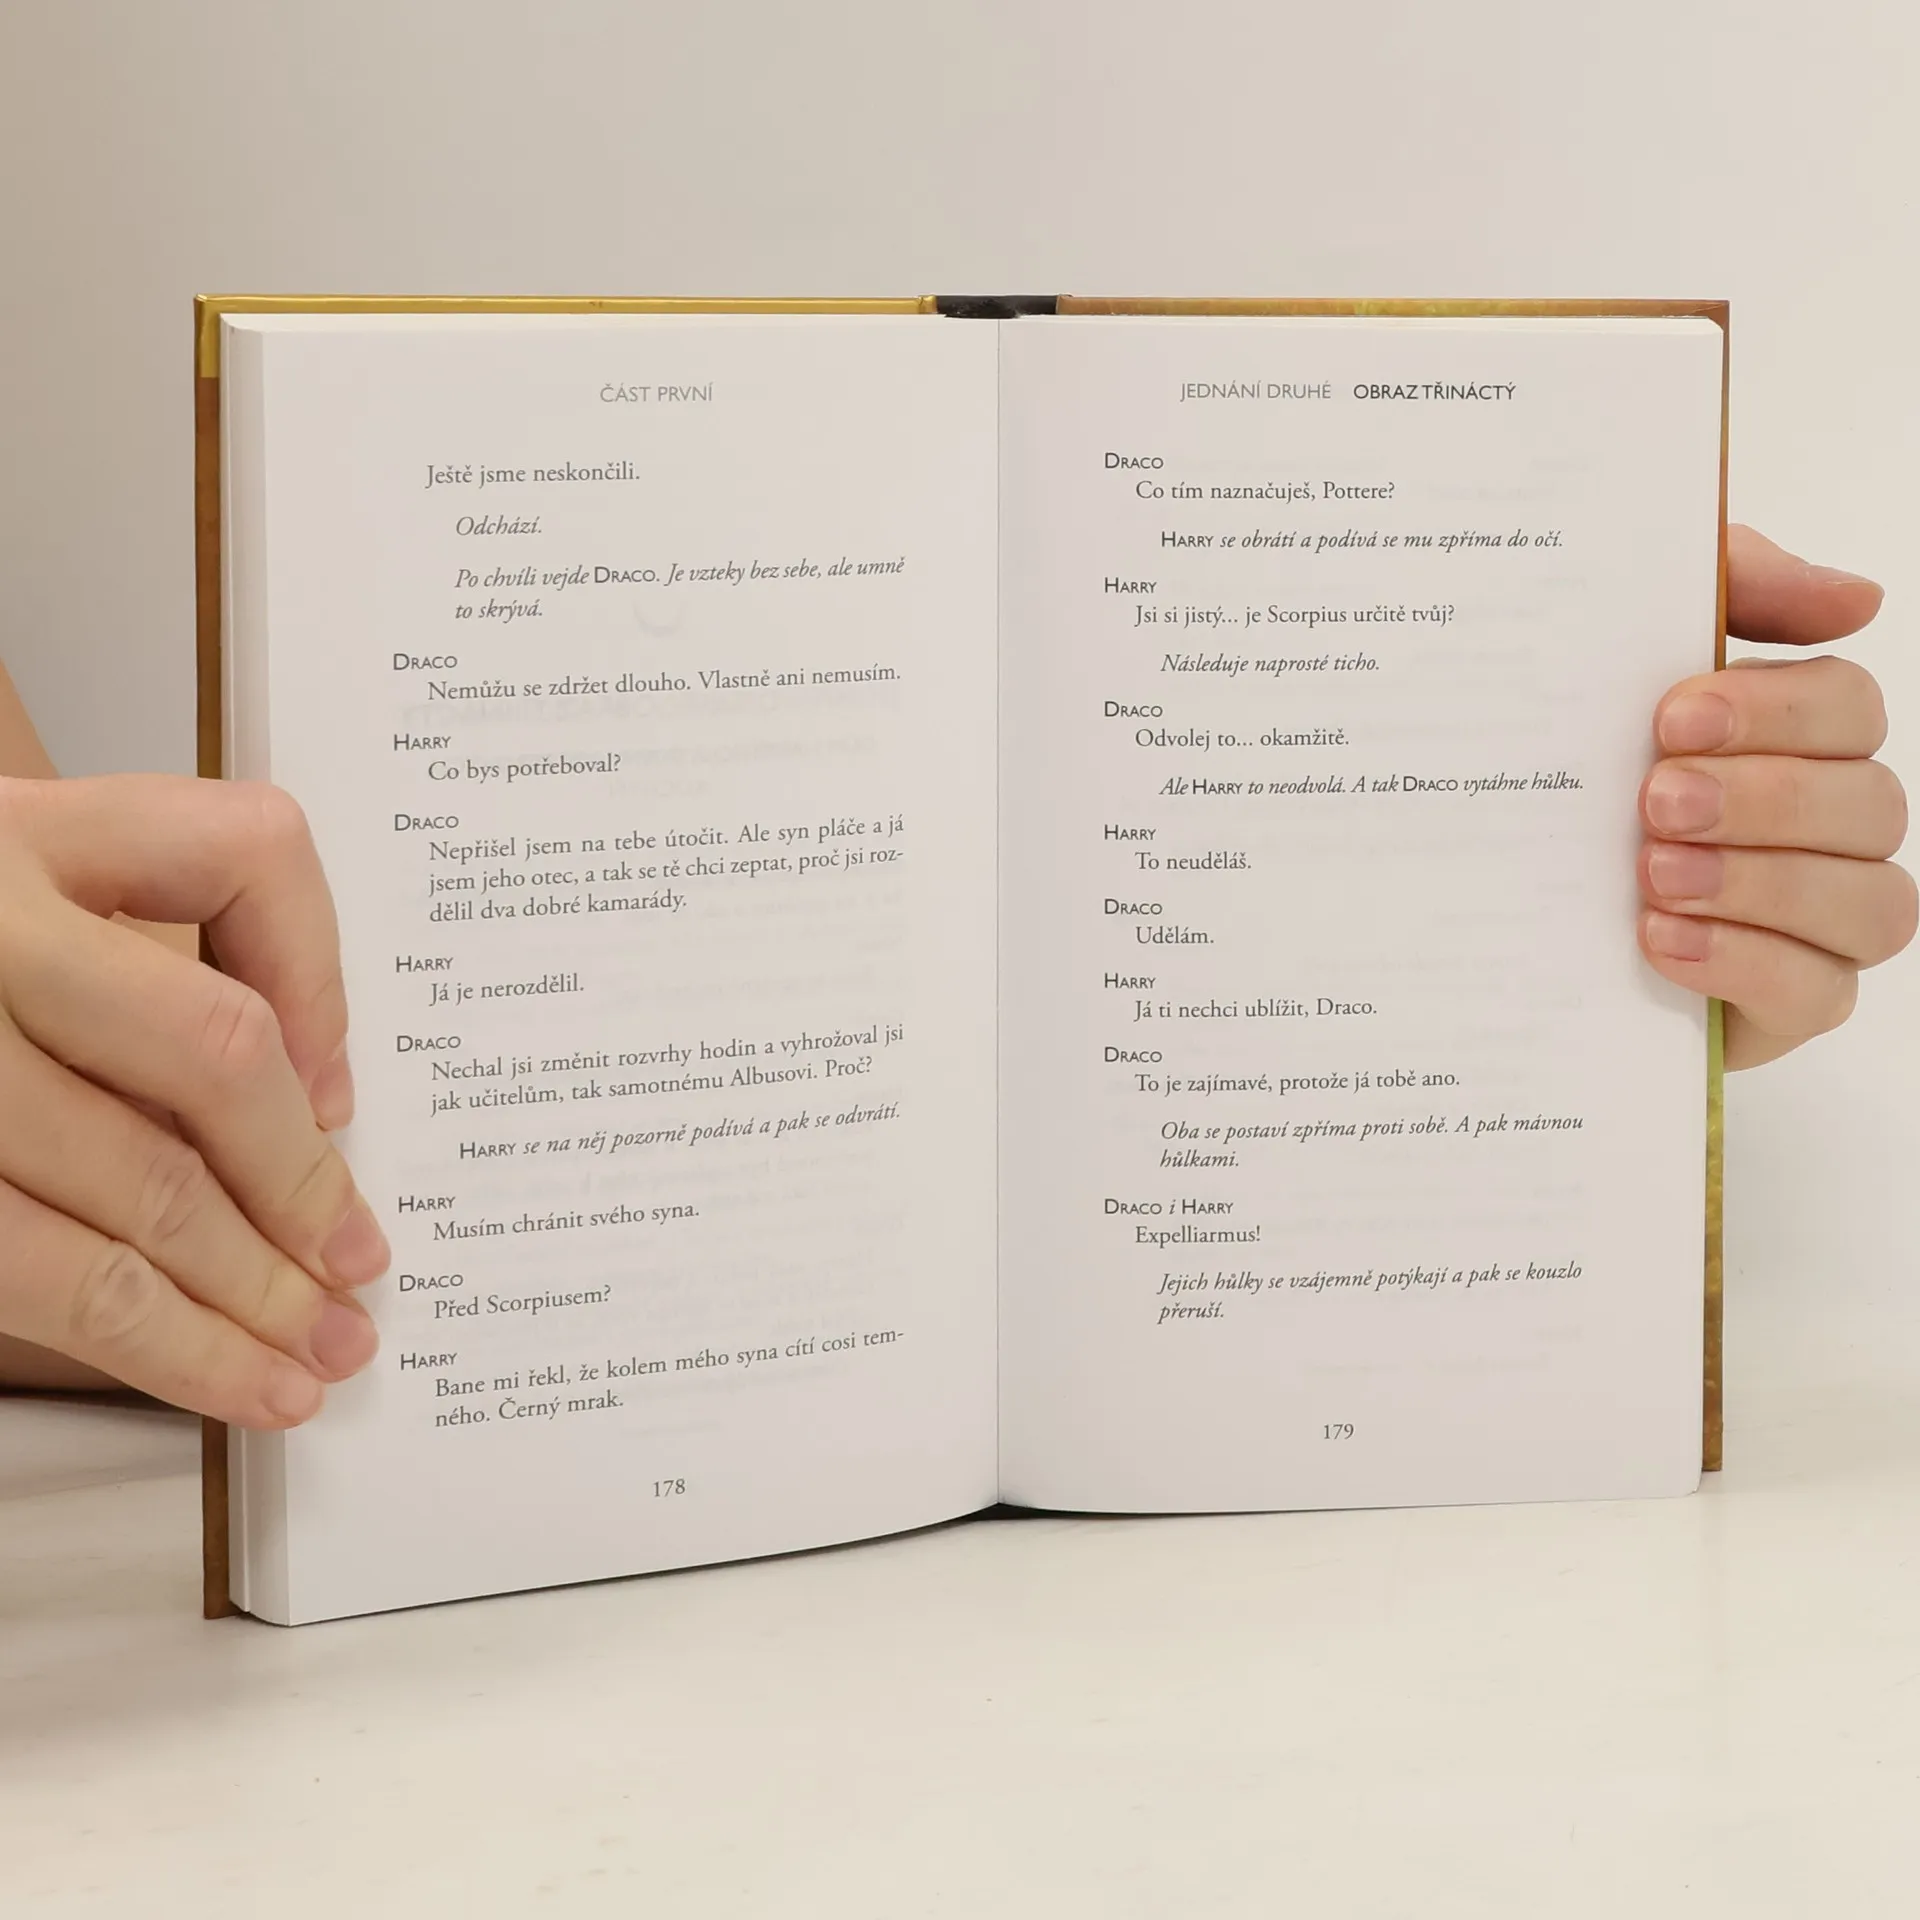 ČÁST PRVNÍ
Ještě jsme neskončili.
Odchází.
Po chvíli vejde DRACO. Je vzteky bez sebe, ale umně
to skrývá.
DRACO
Nemůžu se zdržet dlouho. Vlastně ani nemusím.
HARRY
Co bys potřeboval?
DRACO
Nepřišel jsem na tebe útočit. Ale syn pláče a já
jsem jeho otec, a tak se tě chci zeptat, proč jsi roz-
dělil dva dobré kamarády.
HARRY
Já je nerozdělil.
DRACO
Nechal jsi změnit rozvrhy hodin a vyhrožoval jsi
jak učitelům, tak samotnému Albusovi. Proč?
HARRY se na něj pozorně podívá a pak se odvrátí.
HARRY
Musím chránit svého syna.
DRACO
Před Scorpiusem?
HARRY
Bane mi řekl, že kolem mého syna cítí cosi tem-
ného. Černý mrak.
178
JEDNÁNÍ DRUHÉ OBRAZ TŘINÁCTÝ
DRACO
Co tím naznačuješ, Pottere?
HARRY se obrátí a podívá se mu zpříma do očí.
HARRY
Jsi si jistý... je Scorpius určitě tvůj?
Následuje naprosté ticho.
DRACO
Odvolej to... okamžitě.
Ale HARRY to neodvolá. A tak DRACO vytáhne hůlku.
HARRY
To neuděláš.
DRACO
Udělám.
HARRY
Já ti nechci ublížit, Draco.
DRACO
To je zajímavé, protože já tobě ano.
Oba se postaví zpříma proti sobě. A pak mávnou
hůlkami.
DRACO i HARRY
Expelliarmus!
Jejich hůlky se vzájemně potýkají a pak se kouzlo
přeruší.
179